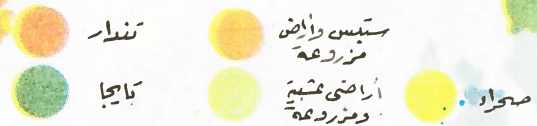 تندار
ستبس وأراض
مزروعة
تايجا
أراضى عشبية
ومزروعة
صحراء